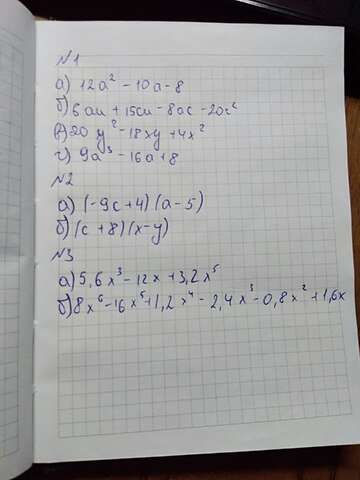 №1
а) 12a² - 10a - 8
б) 6au + 15cu - 8ac - 20c²
в) 20y² - 18xy + 4x²
г) 9a³ - 16a + 8
№2
а) (-9c+4)(a-5)
б) (c+8)(x-y)
№3
а) 5,6x³ - 12x + 3,2x⁵
б) 8x⁶ - 16x⁵ + 1,2x⁴ - 2,4x³ - 0,8x² + 1,6x